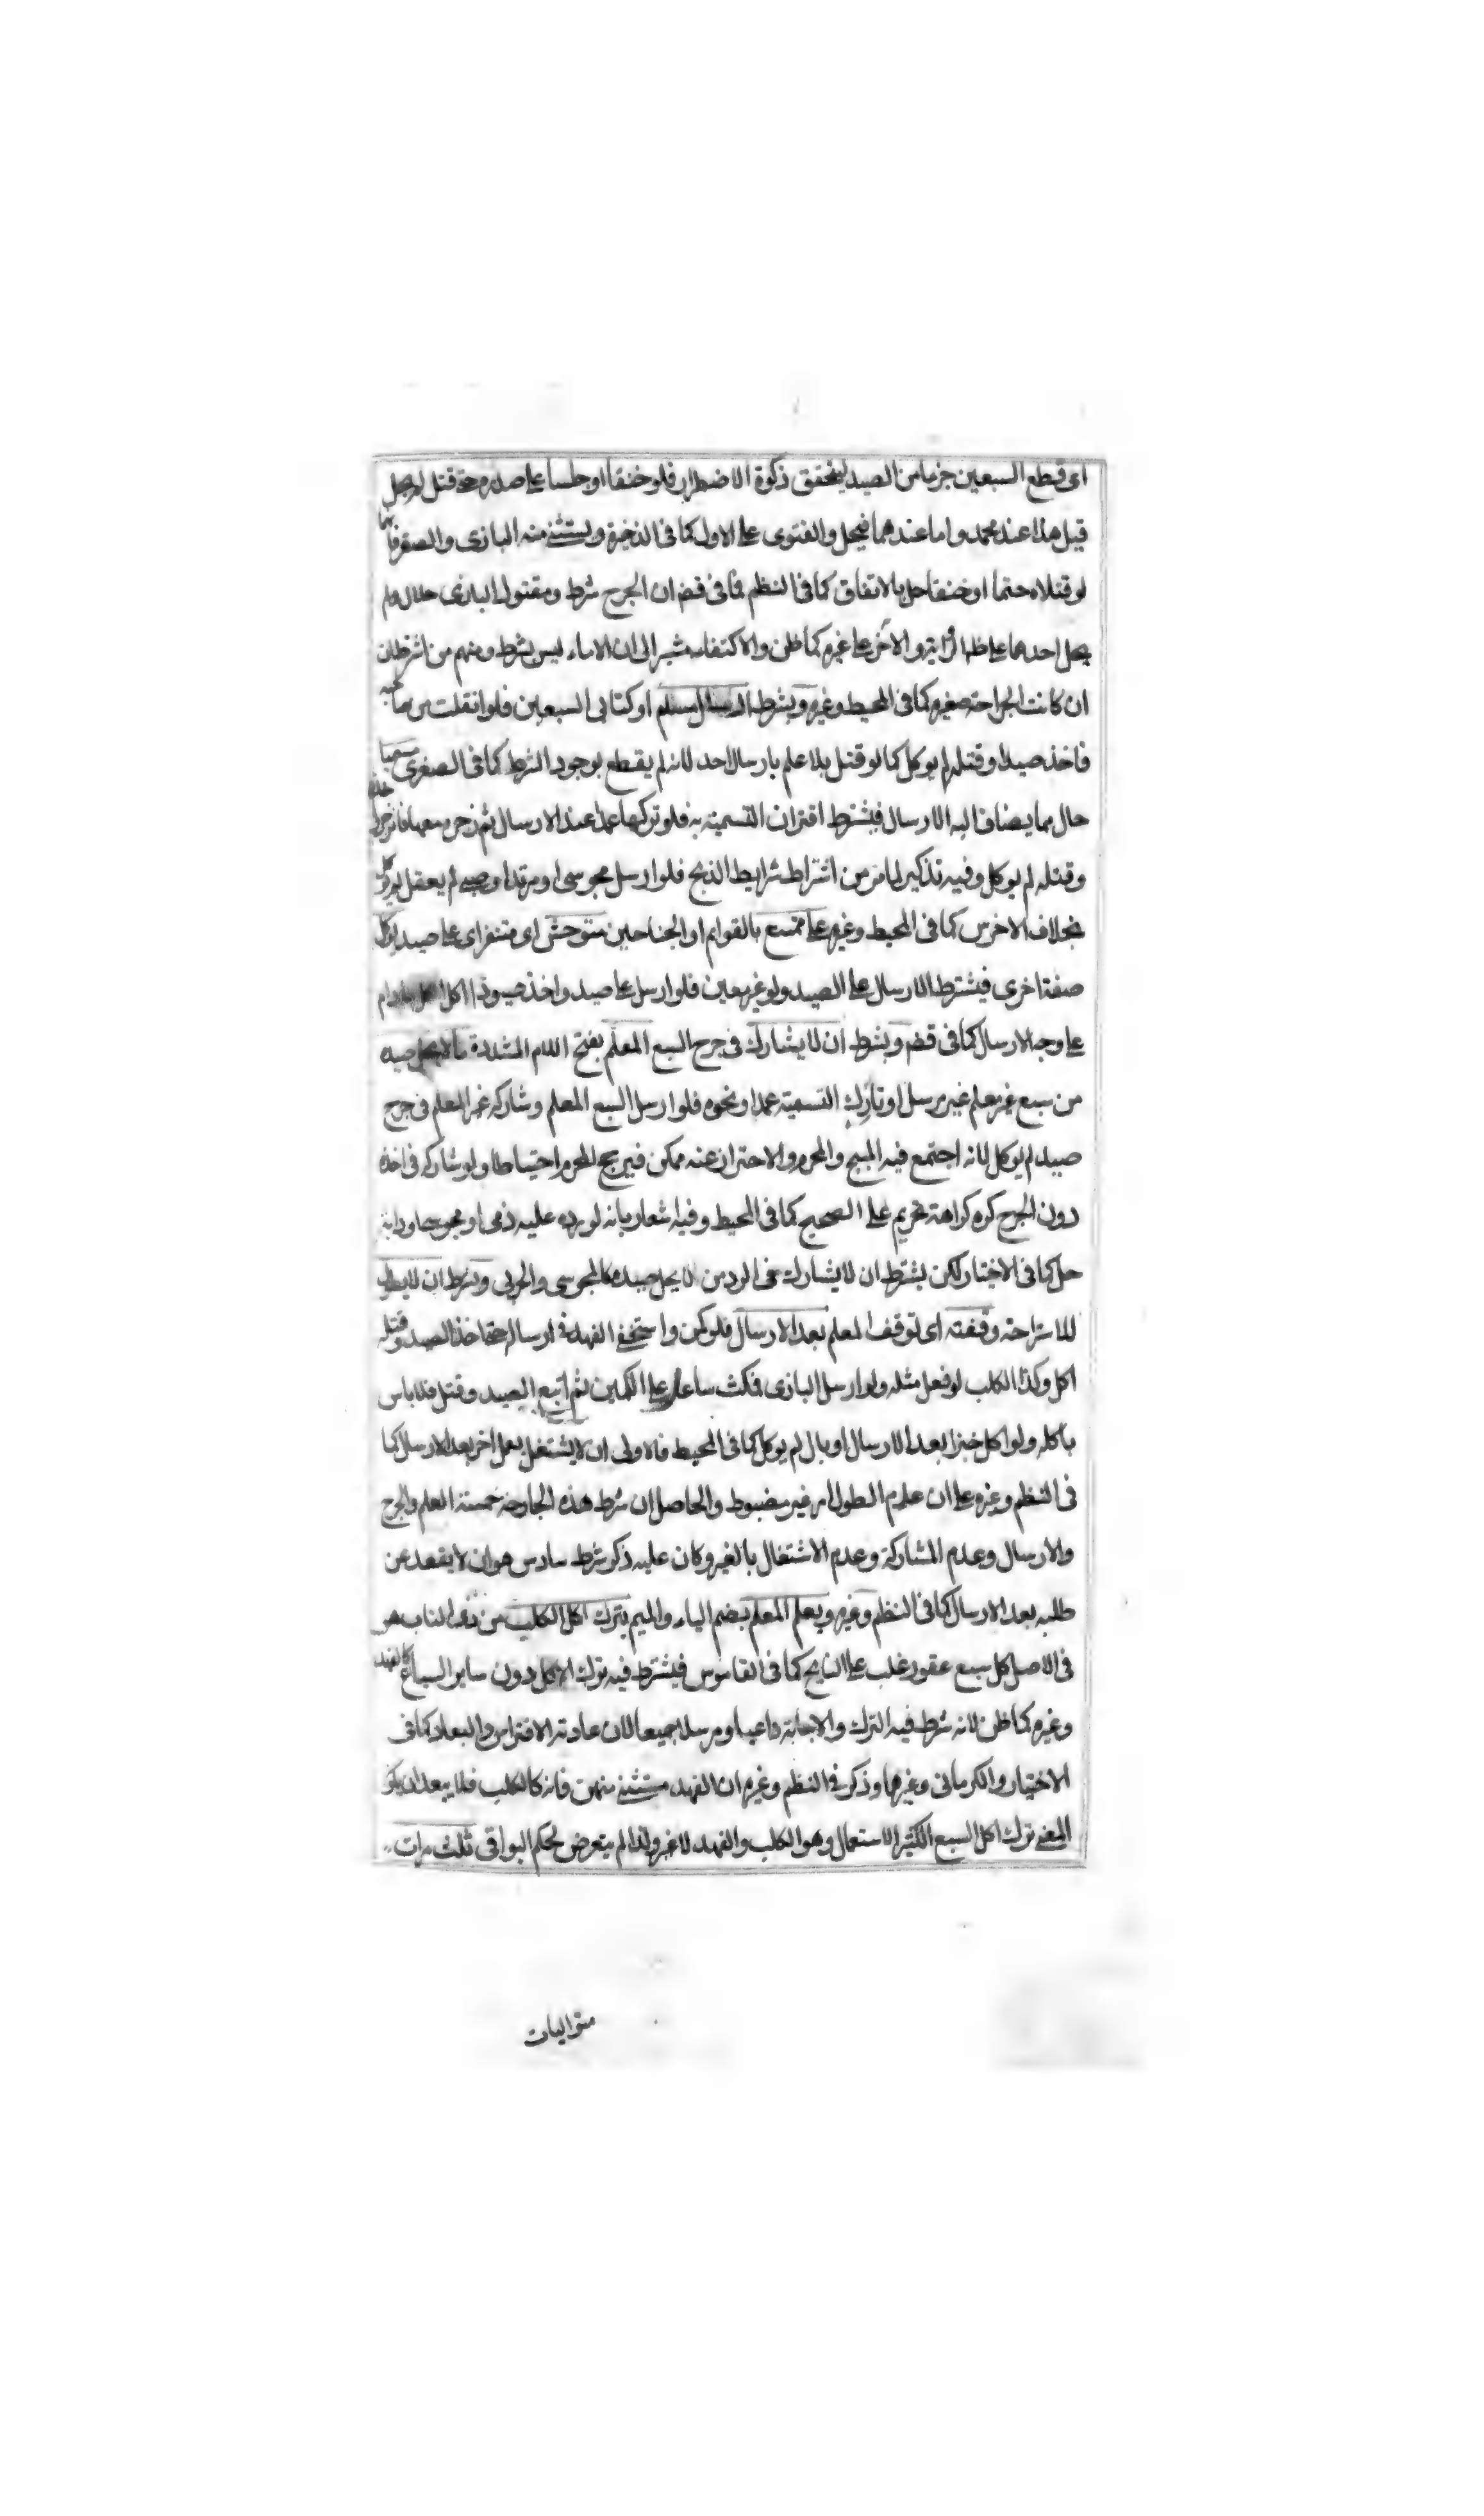 اى قطع السبعين جزءا من الصيد ليتحقق ذكوة الاضطرار فلو خنقا او جلسا على صدره حتى قتل لم يحل
قيل هذا عند محمد واما عندهما فيحل والفتوى على الاول كما فى الذخيرة ويستثنى منه البازى والصقر فانهما
لو قتلاه حتما او خنقا حل بالاتفاق كما فى النظم فما فى قض ان الجرح شرط ومقتول البازى حلال ولم
يحمل احدهما على ظاهر الرواية والاخر على غيره كما ظن والاكتفاء مشير الى ان الادماء ليس بشرط ومنهم من اشترط ان
ان كانت الجراحة صغيرة كما فى المحيط وغيره وبشرط ارسال مسلم او كتابى السبعين فلو انفلت من صاحبه
فاخذ صيدا وقتله لم يوكل كما لو قتل بلا علم بارسال احد لانه لم يقطع بوجود الشرط كما فى الصغرى مسميا
حال مما يضاف اليه الارسال فيشترط اقتران التسمية به فلو تركها عمدا عند الارسال ثم زجره معها فانزجر
وقتله لم يوكل وفيه تذكير لما مر من اشتراط شرايط الذبح فلو ارسل مجوسى او مرتد او صبى لم يعقل لم يوكل
بخلاف الاخرس كما فى المحيط وغيره على ممتنع بالقوايم او الجناحين متوحش اى متنفر اى على صيد يوكل
صفة اخرى فيشترط الارسال على الصيد ولو غير معين فلو ارسل على صيد واخذ صيودا اكل الكل ما دام
على وجه الارسال كما فى قض وبشرط ان لا يشارك فى جرح السبع المعلم بفتح اللام المشددة ما لا يحل صيده
من سبع غير معلم غير مرسل او تارك التسمية عمدا ونحوه فلو ارسل السبع المعلم وشاركه غير المعلم فى جرح
صيد لم يوكل لانه اجتمع فيه المبيح والمحرم والاحتراز عنه ممكن فيرجح المحرم احتياطا ولو شاركه فى اخذه
دون الجرح كره كراهة تحريم على الصحيح كما فى المحيط وفيه اشعار بانه لو رده عليه ذمى او مجوسى او دابة
حل كما فى الاختيار لكن يشترط ان لا يشارك فى الرد من لا يحل صيده كالمجوسى والحربى وبشرط ان لا يطول
للاستراحة وقفته اى توقف المعلم بعد الارسال فلو كمن واستخفى الفهد فى ارساله حتى اخذ الصيد وقتله
اكل وكذا الكلب لو فعل مثله ولو ارسل البازى فمكث ساعة على الكمين ثم اتبع الصيد وقتل فلا باس
باكله ولو اكل خبزا بعد الارسال او بال لم يوكل كما فى المحيط فالاولى ان لا يشتغل بعمل اخر بعد الارسال كما
فى النظم وغيره على ان عدم الطول امر غير مضبوط والحاصل ان شرط هذه الجارحة خمسة العلم والجرح
والارسال وعدم المشاركة وعدم الاشتغال بالغير وكان عليه ذكر شرط سادس هو ان لا يقعد عن
طلبه بعد الارسال كما فى النظم وغيره ويعلم المعلم بضم الياء والميم بترك اكل الكلب من ذى الناب هو
فى الاصل كل سبع عقور غلب على النابح كما فى القاموس فيشترط فيه ترك الاكل دون ساير السباع كالفهد
وغيره كما ظن لانه شرط فيه الترك والاجابة داعيا ومرسلا جميعا لان عادته الافتراس والبعاد كما فى
الاختيار والكرمانى وغيرها وذكر فى النظم وغيره ان الفهد مستثنى منهن فانه كالكلب فلا يبعد ان يكون
المعنى ترك اكل السبع الكثير الاستعمال وهو الكلب والفهد لا غير ولذا لم يتعرض لحكم البواقى ثلث مرات
متواليات